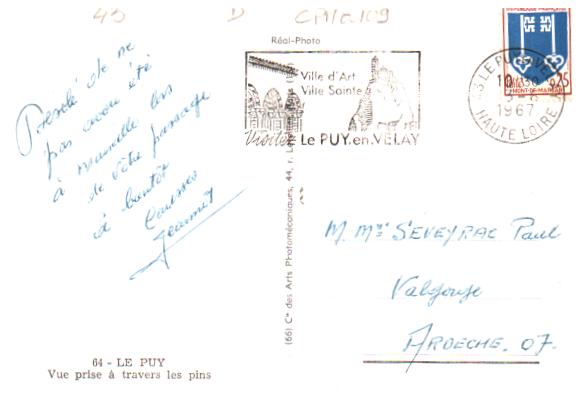 43 D CPA a 109
Réal-Photo
RÉPUBLIQUE FRANÇAISE
0,25
MONT-DE-MARSAN
43 LE PUY
10H30
5-8
1967
HAUTE LOIRE
Ville d'Art
Ville Sainte
Visitez Le PUY.en.VELAY
Désolé de ne
pas avoir été
à Marseille lors
de votre passage
à bientôt
Jeannot
M. Mme SEVEYRAC Paul
Valgorge
ARDECHE. 07.
(66) Cie des Arts Photomécaniques, 44, r.
64 - LE PUY
Vue prise à travers les pins